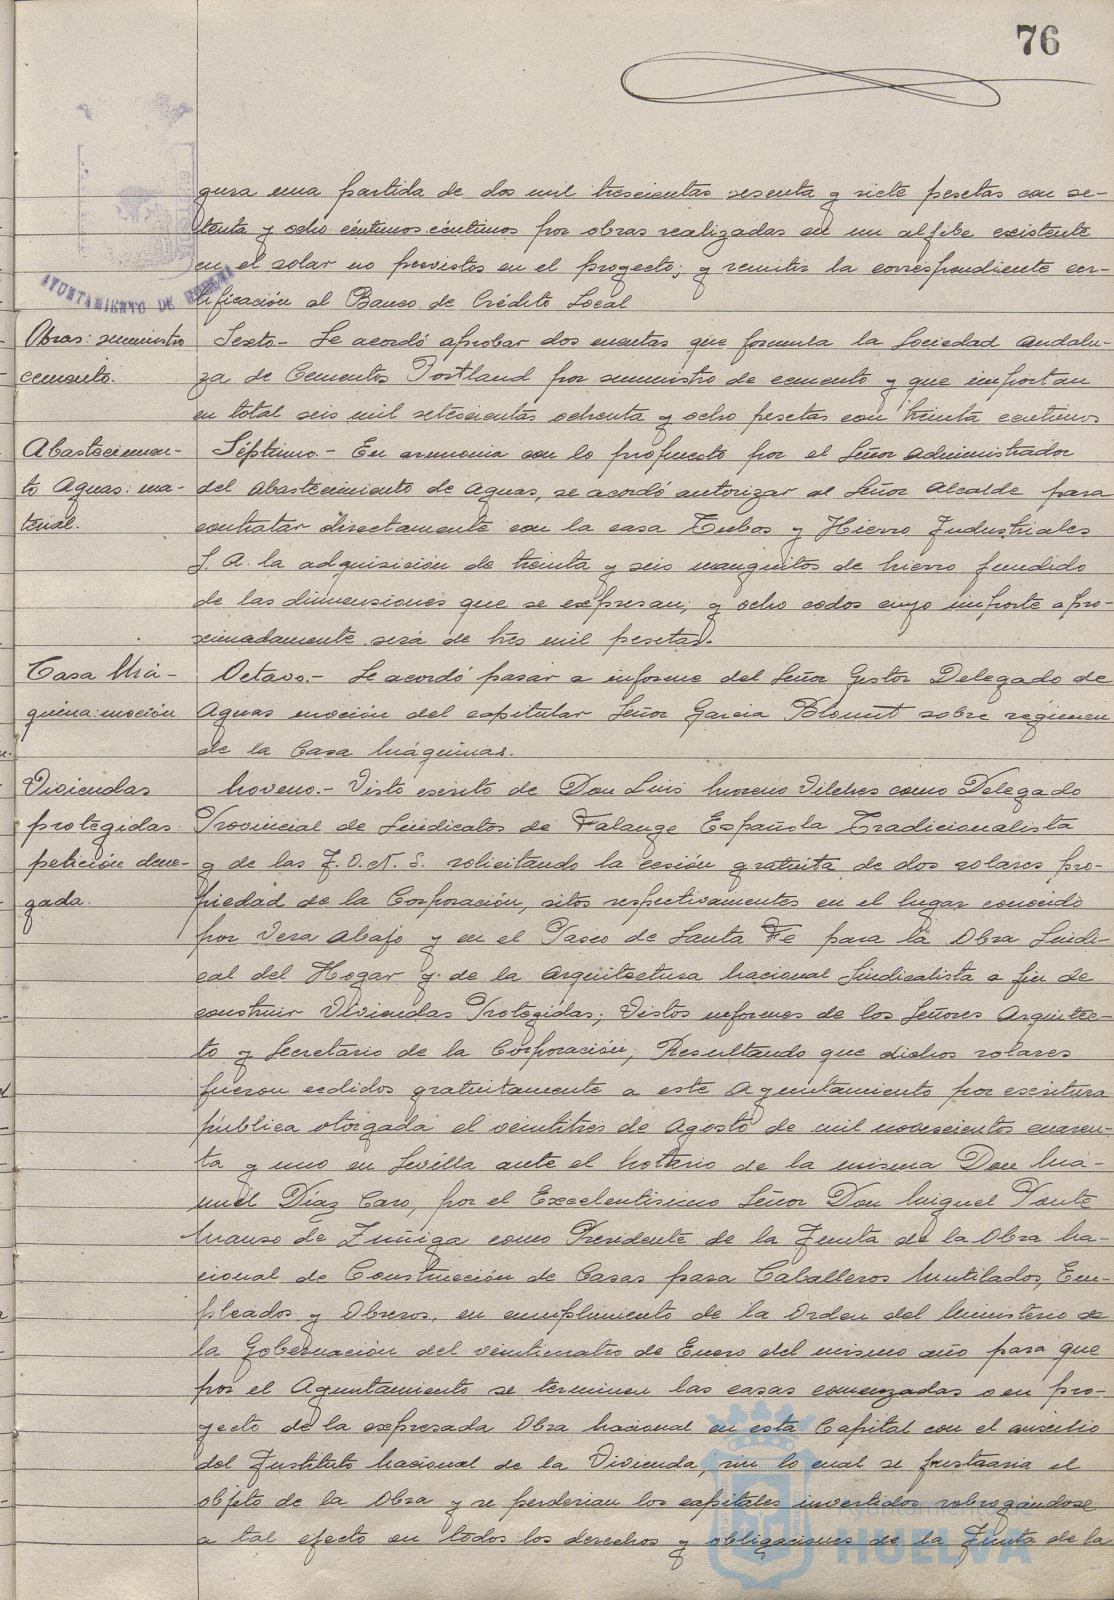 76
AYUNTAMIENTO DE HUELVA
gura una partida de dos mil trescientas sesenta y siete pesetas con se-
tenta y ocho céntimos céntimos por obras realizadas en un alfibe existente
en el solar no previstos en el proyecto; y remitir la correspondiente cer-
tificación al Banco de Crédito Local
Obras: suministro
cemento.
Sexto.- Se acordó aprobar dos cuentas que formula la Sociedad Andalu-
za de Cementos Portland por suministro de cemento y que importan
en total seis mil setescientas ochenta y ocho pesetas con treinta centimos
Abastecimien-
to Aguas: ma-
terial.
Séptimo.- En armonia con lo propuesto por el Señor Administrador
del Abastecimiento de Aguas, se acordó autorizar al Señor Alcalde para
contratar directamente con la casa Tubos y Hierro Industriales
S. A. la adquisición de treinta y seis manguitos de hierro fundido
de las dimensiones que se expresan; y ocho codos cuyo importe apro-
ximadamente será de tres mil pesetas.
Casa Má-
quina: moción
Octavo.- Se acordó pasar a informe del Señor Gestor Delegado de
Aguas moción del capitular Señor Garcia Blount sobre regimen
de la Casa Máquinas.
Viviendas
protegidas:
petición dene-
gada.
Noveno.- Visto escrito de Don Luis Moreno Vilches como Delegado
Provincial de Sindicatos de Falange Española Tradicionalista
y de las J. O. N. S. solicitando la cesión gratuita de dos solares pro-
piedad de la Corporación, sitos respectivamentes en el lugar conocido
por Vera Abajo y en el Paseo de Santa Fe para la Obra Sindi-
cal del Hogar y de la Arquitectura Nacional Sindicalista a fin de
construir Viviendas Protegidas; Vistos informes de los Señores Arquitec-
to y Secretario de la Corporación; Resultando que dichos solares
fueron cedidos gratuitamente a este Ayuntamiento por escritura
pública otorgada el veintitres de Agosto de mil novecientos cuaren-
ta y uno en Sevilla ante el Notario de la misma Don Ma-
nuel Díaz Caro, por el Excelentisimo Señor Don Miguel Ponte
Manso de Zuñiga como Presidente de la Junta de la Obra Na-
cional de Construcción de Casas para Caballeros Mutilados, Em-
pleados y Obreros, en cumplimiento de la Orden del Ministerio de
la Gobernación del veinticuatro de Enero del mismo año para que
por el Ayuntamiento se terminen las casas comenzadas o en pro-
yecto de la expresada Obra Nacional en esta Capital con el auxilio
del Instituto Nacional de la Vivienda, sin lo cual se frustraria el
objeto de la Obra y se perderian los capitales invertidos subrogandose
a tal efecto en todos los derechos y obligaciones de la Junta de la
Ayuntamiento de
HUELVA